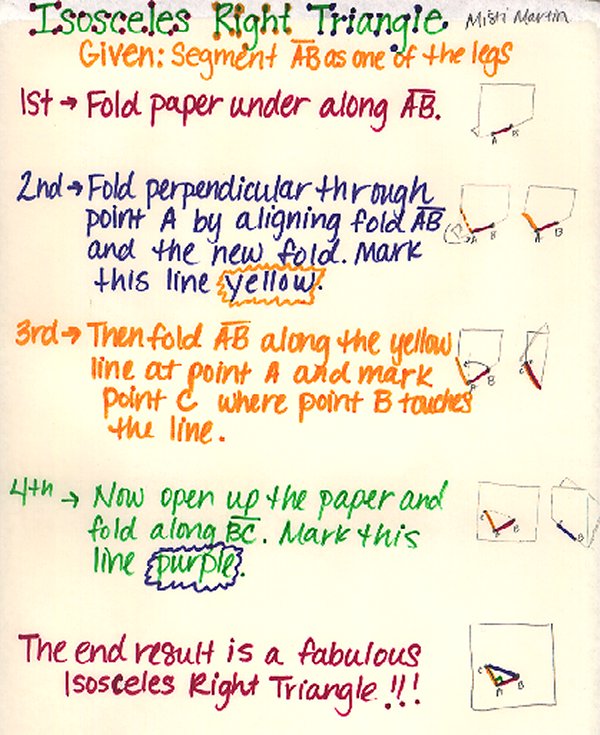 Isosceles Right Triangle Misti Martin
Given: Segment A̅B̅ as one of the legs
1st → Fold paper under along A̅B̅.
A B
2nd → Fold perpendicular through
point A by aligning fold A̅B̅
and the new fold. Mark
this line yellow.
A B
A B
3rd → Then fold A̅B̅ along the yellow
line at point A and mark
point C where point B touches
the line.
C A B
C
4th → Now open up the paper and
fold along B̅C̅. Mark this
line purple.
C A B
C B
The end result is a fabulous
Isosceles Right Triangle!!!
C A B